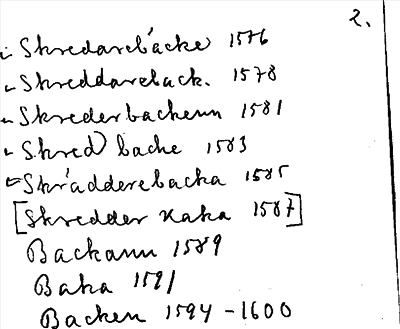 2.
Skredarebäcke 1576
Skreddareback. 1578
Skrederbackenn 1581
Skred) backe 1583
Skrädderebacka 1585
[Skredder Kaka 1587]
Backann 1589
Baka 1591
Backen 1594-1600